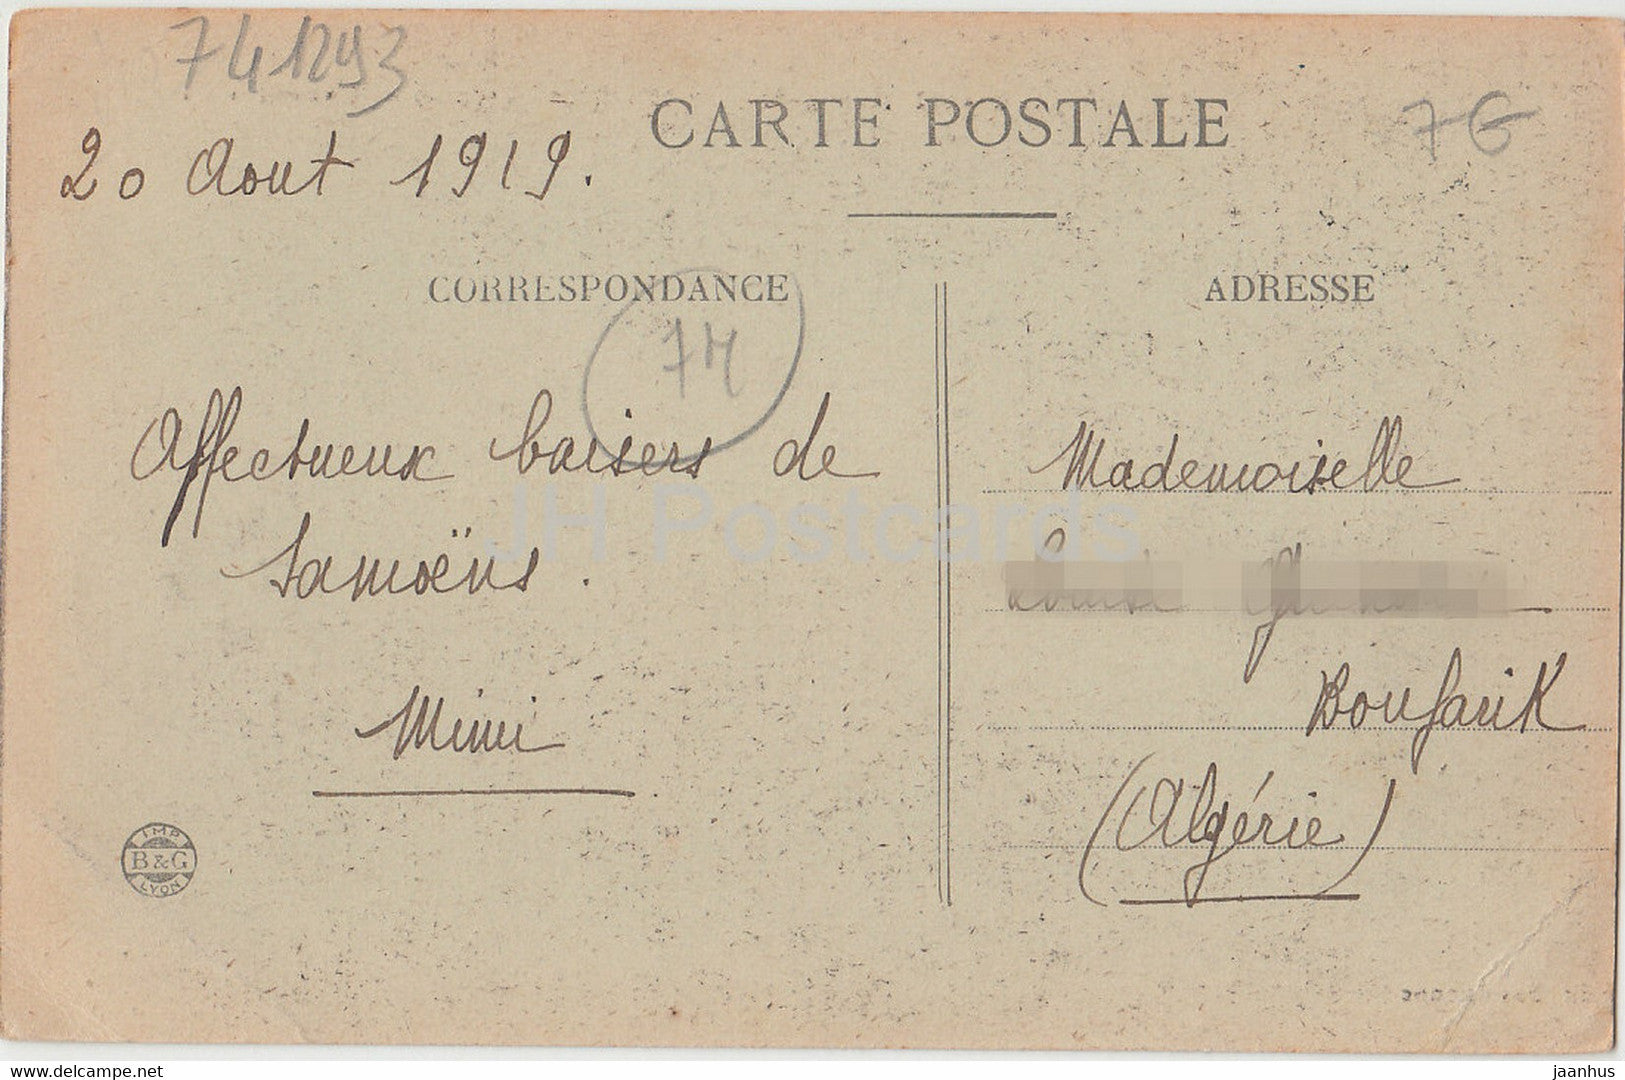 741293
CARTE POSTALE
76
20 Aout 1919.
CORRESPONDANCE
ADRESSE
74
Affectueux baisers de
Samoëns.
Mimi
Mademoiselle
Boufarik
(Algérie)
IMP
B & G
LYON
JH Postcards
delcampe.net
jaanhus